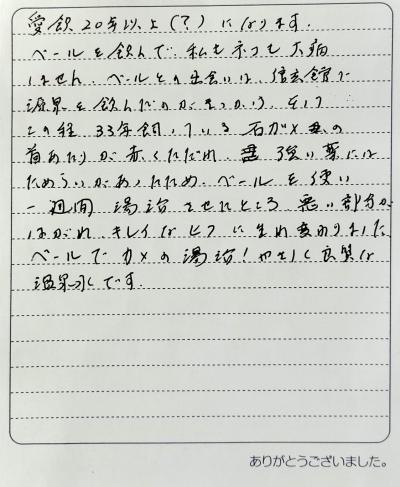 愛飲20年以上(?)になります.
ベールを飲んで、私もネコも大病
はせん、ベールとの出会いは、信玄館で
源泉を飲んだのがきっかけ、そして
その経、33年飼っている石ガメの
首あたりが赤くただれ、強い薬には
ためらいがあったため、ベールを使い
一週間湯治させたところ悪い部分が
はがれ、キレイなヒフに生れ変わりました
ベールでカメの湯治!やさしく良質な
温泉水です.
ありがとうございました。